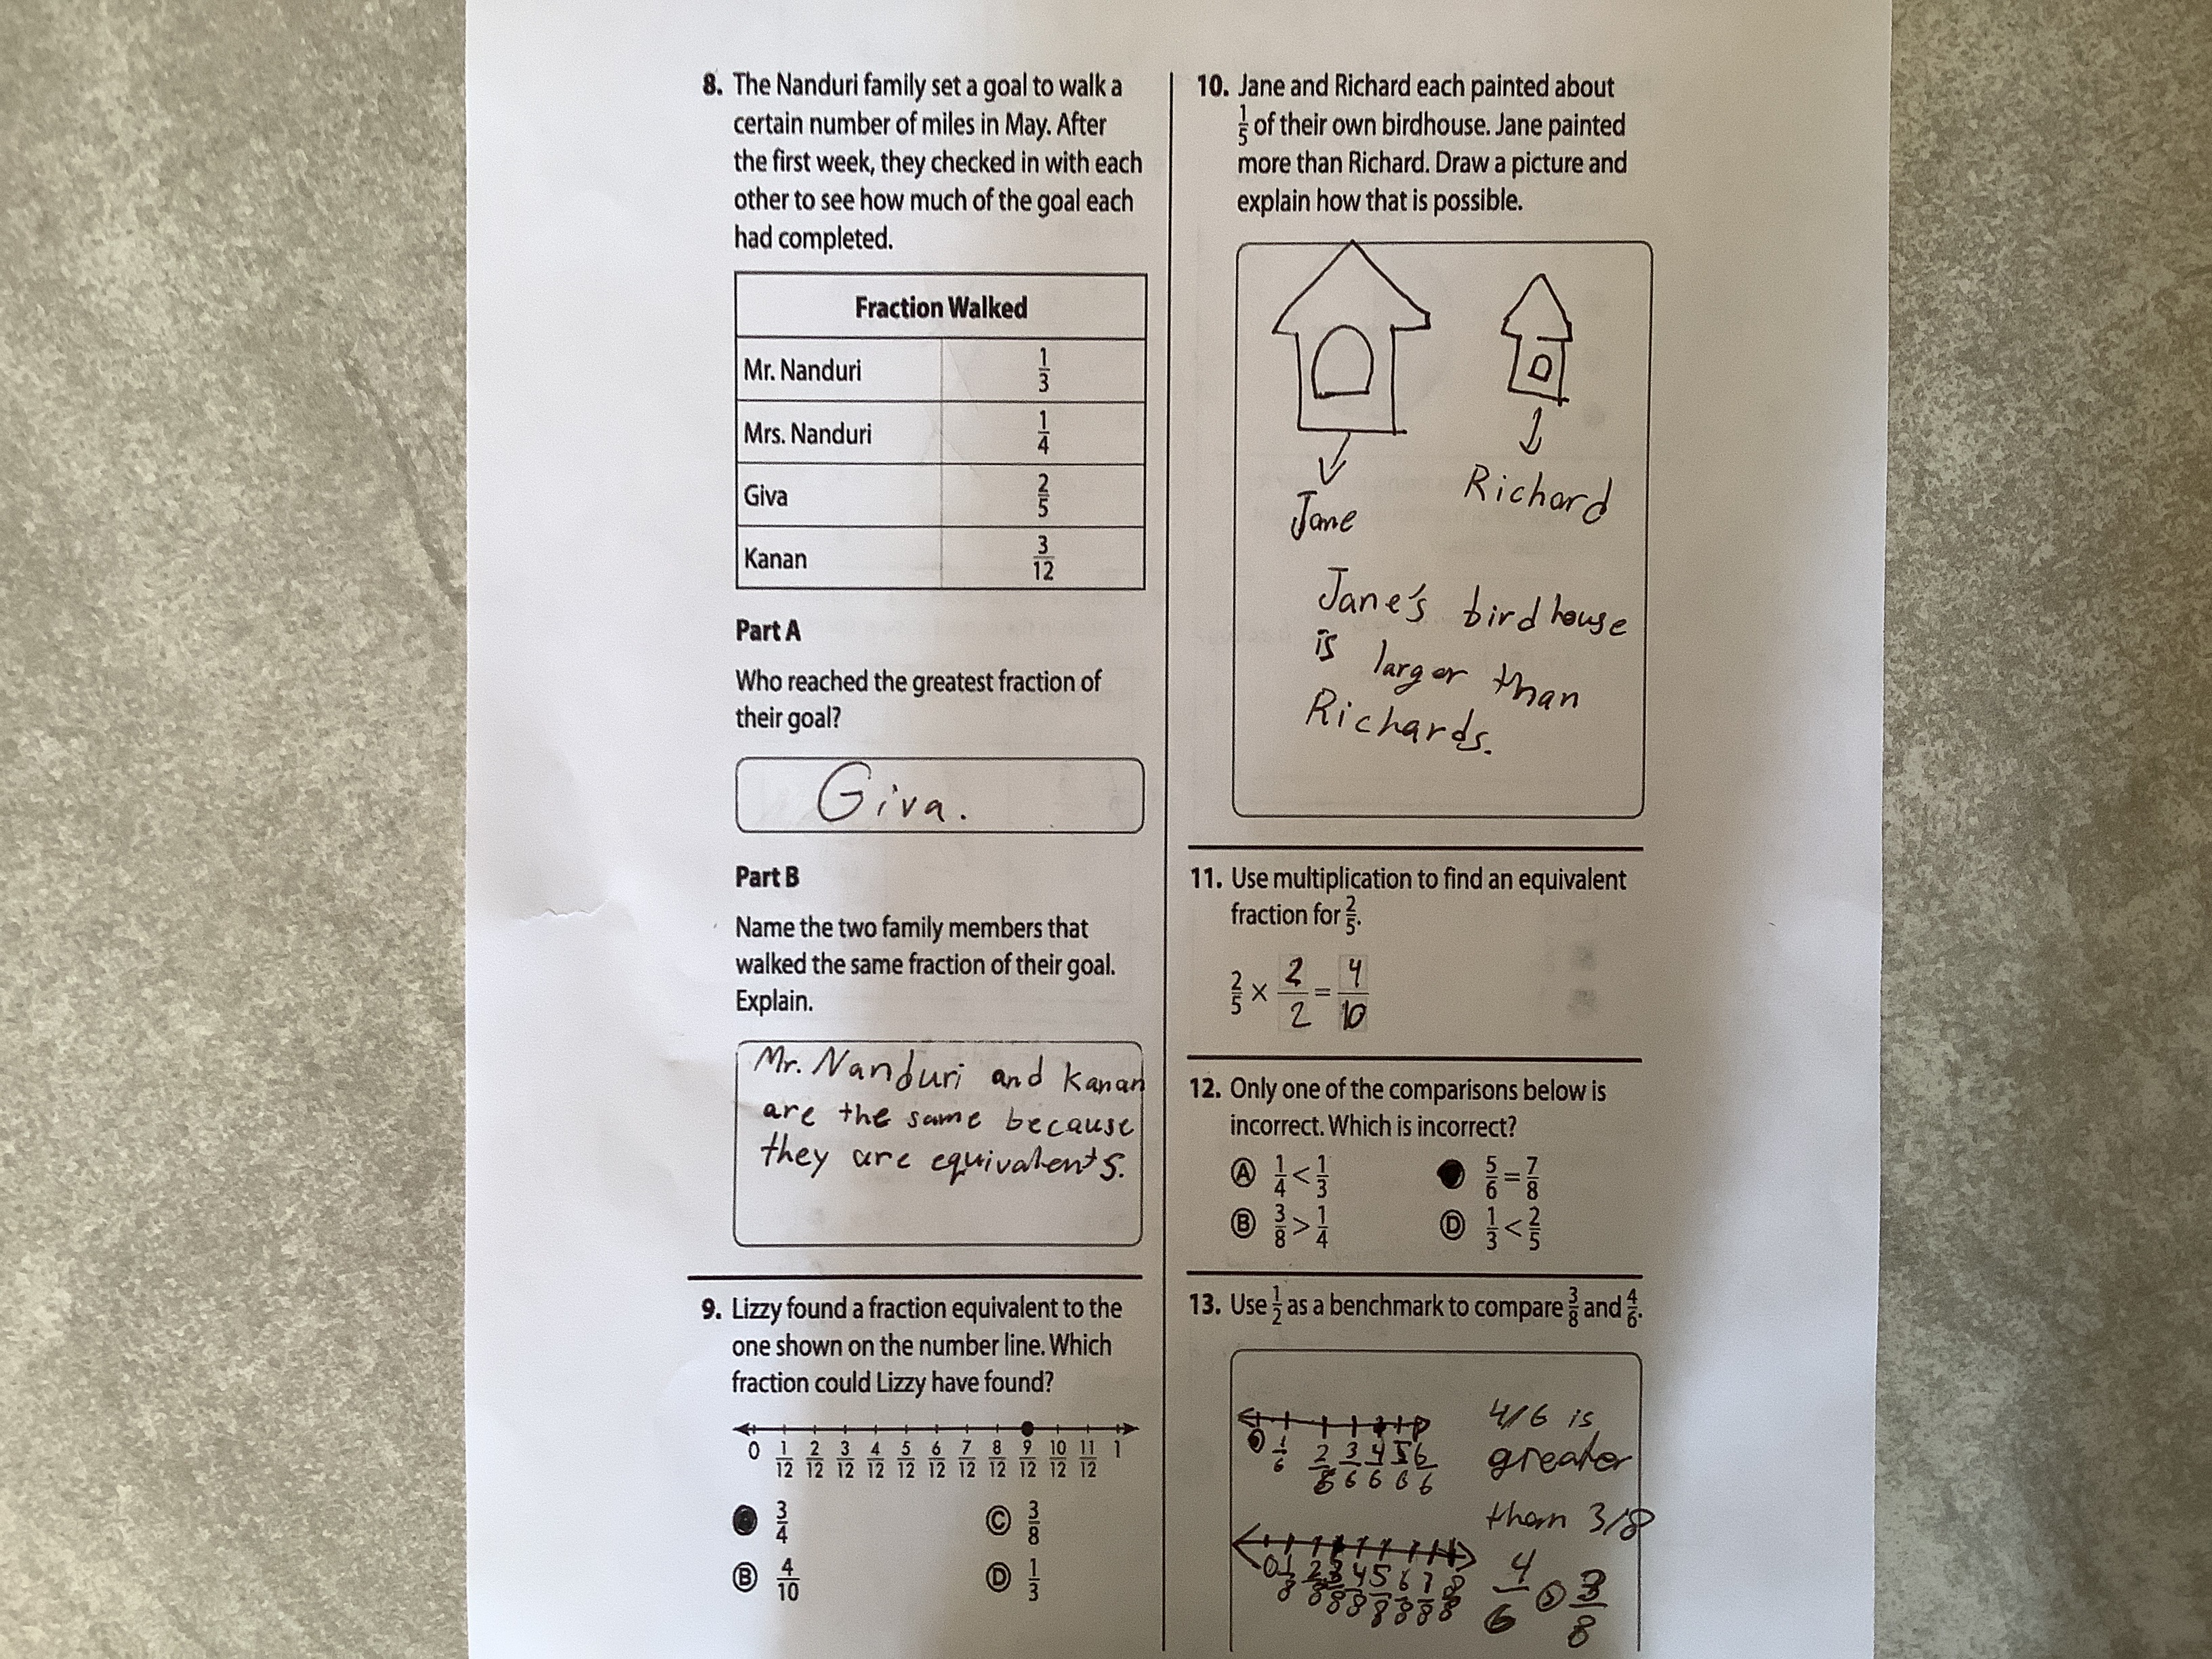 8. The Nanduri family set a goal to walk a
certain number of miles in May. After
the first week, they checked in with each
other to see how much of the goal each
had completed.
Fraction Walked
Mr. Nanduri 1/3
Mrs. Nanduri 1/4
Giva 2/5
Kanan 3/12
Part A
Who reached the greatest fraction of
their goal?
Giva.
Part B
Name the two family members that
walked the same fraction of their goal.
Explain.
Mr. Nanduri and Kanan
are the same because
they are equivalents.
9. Lizzy found a fraction equivalent to the
one shown on the number line. Which
fraction could Lizzy have found?
0 1/12 2/12 3/12 4/12 5/12 6/12 7/12 8/12 9/12 10/12 11/12 1
3/4 C 3/8
B 4/10 D 1/3
10. Jane and Richard each painted about
1/5 of their own birdhouse. Jane painted
more than Richard. Draw a picture and
explain how that is possible.
Jane Richard
Jane's birdhouse
is larger than
Richards.
11. Use multiplication to find an equivalent
fraction for 2/5.
2/5 × 2/2 = 4/10
12. Only one of the comparisons below is
incorrect. Which is incorrect?
A 1/4 < 1/3 5/6 = 7/8
B 3/8 > 1/4 D 1/3 < 2/5
13. Use 1/2 as a benchmark to compare 3/8 and 4/6.
0 1/6 2/6 3/6 4/6 5/6 6/6
4/6 is
greater
than 3/8
0 1/8 2/8 3/8 4/8 5/8 6/8 7/8 8/8
4/6 > 3/8